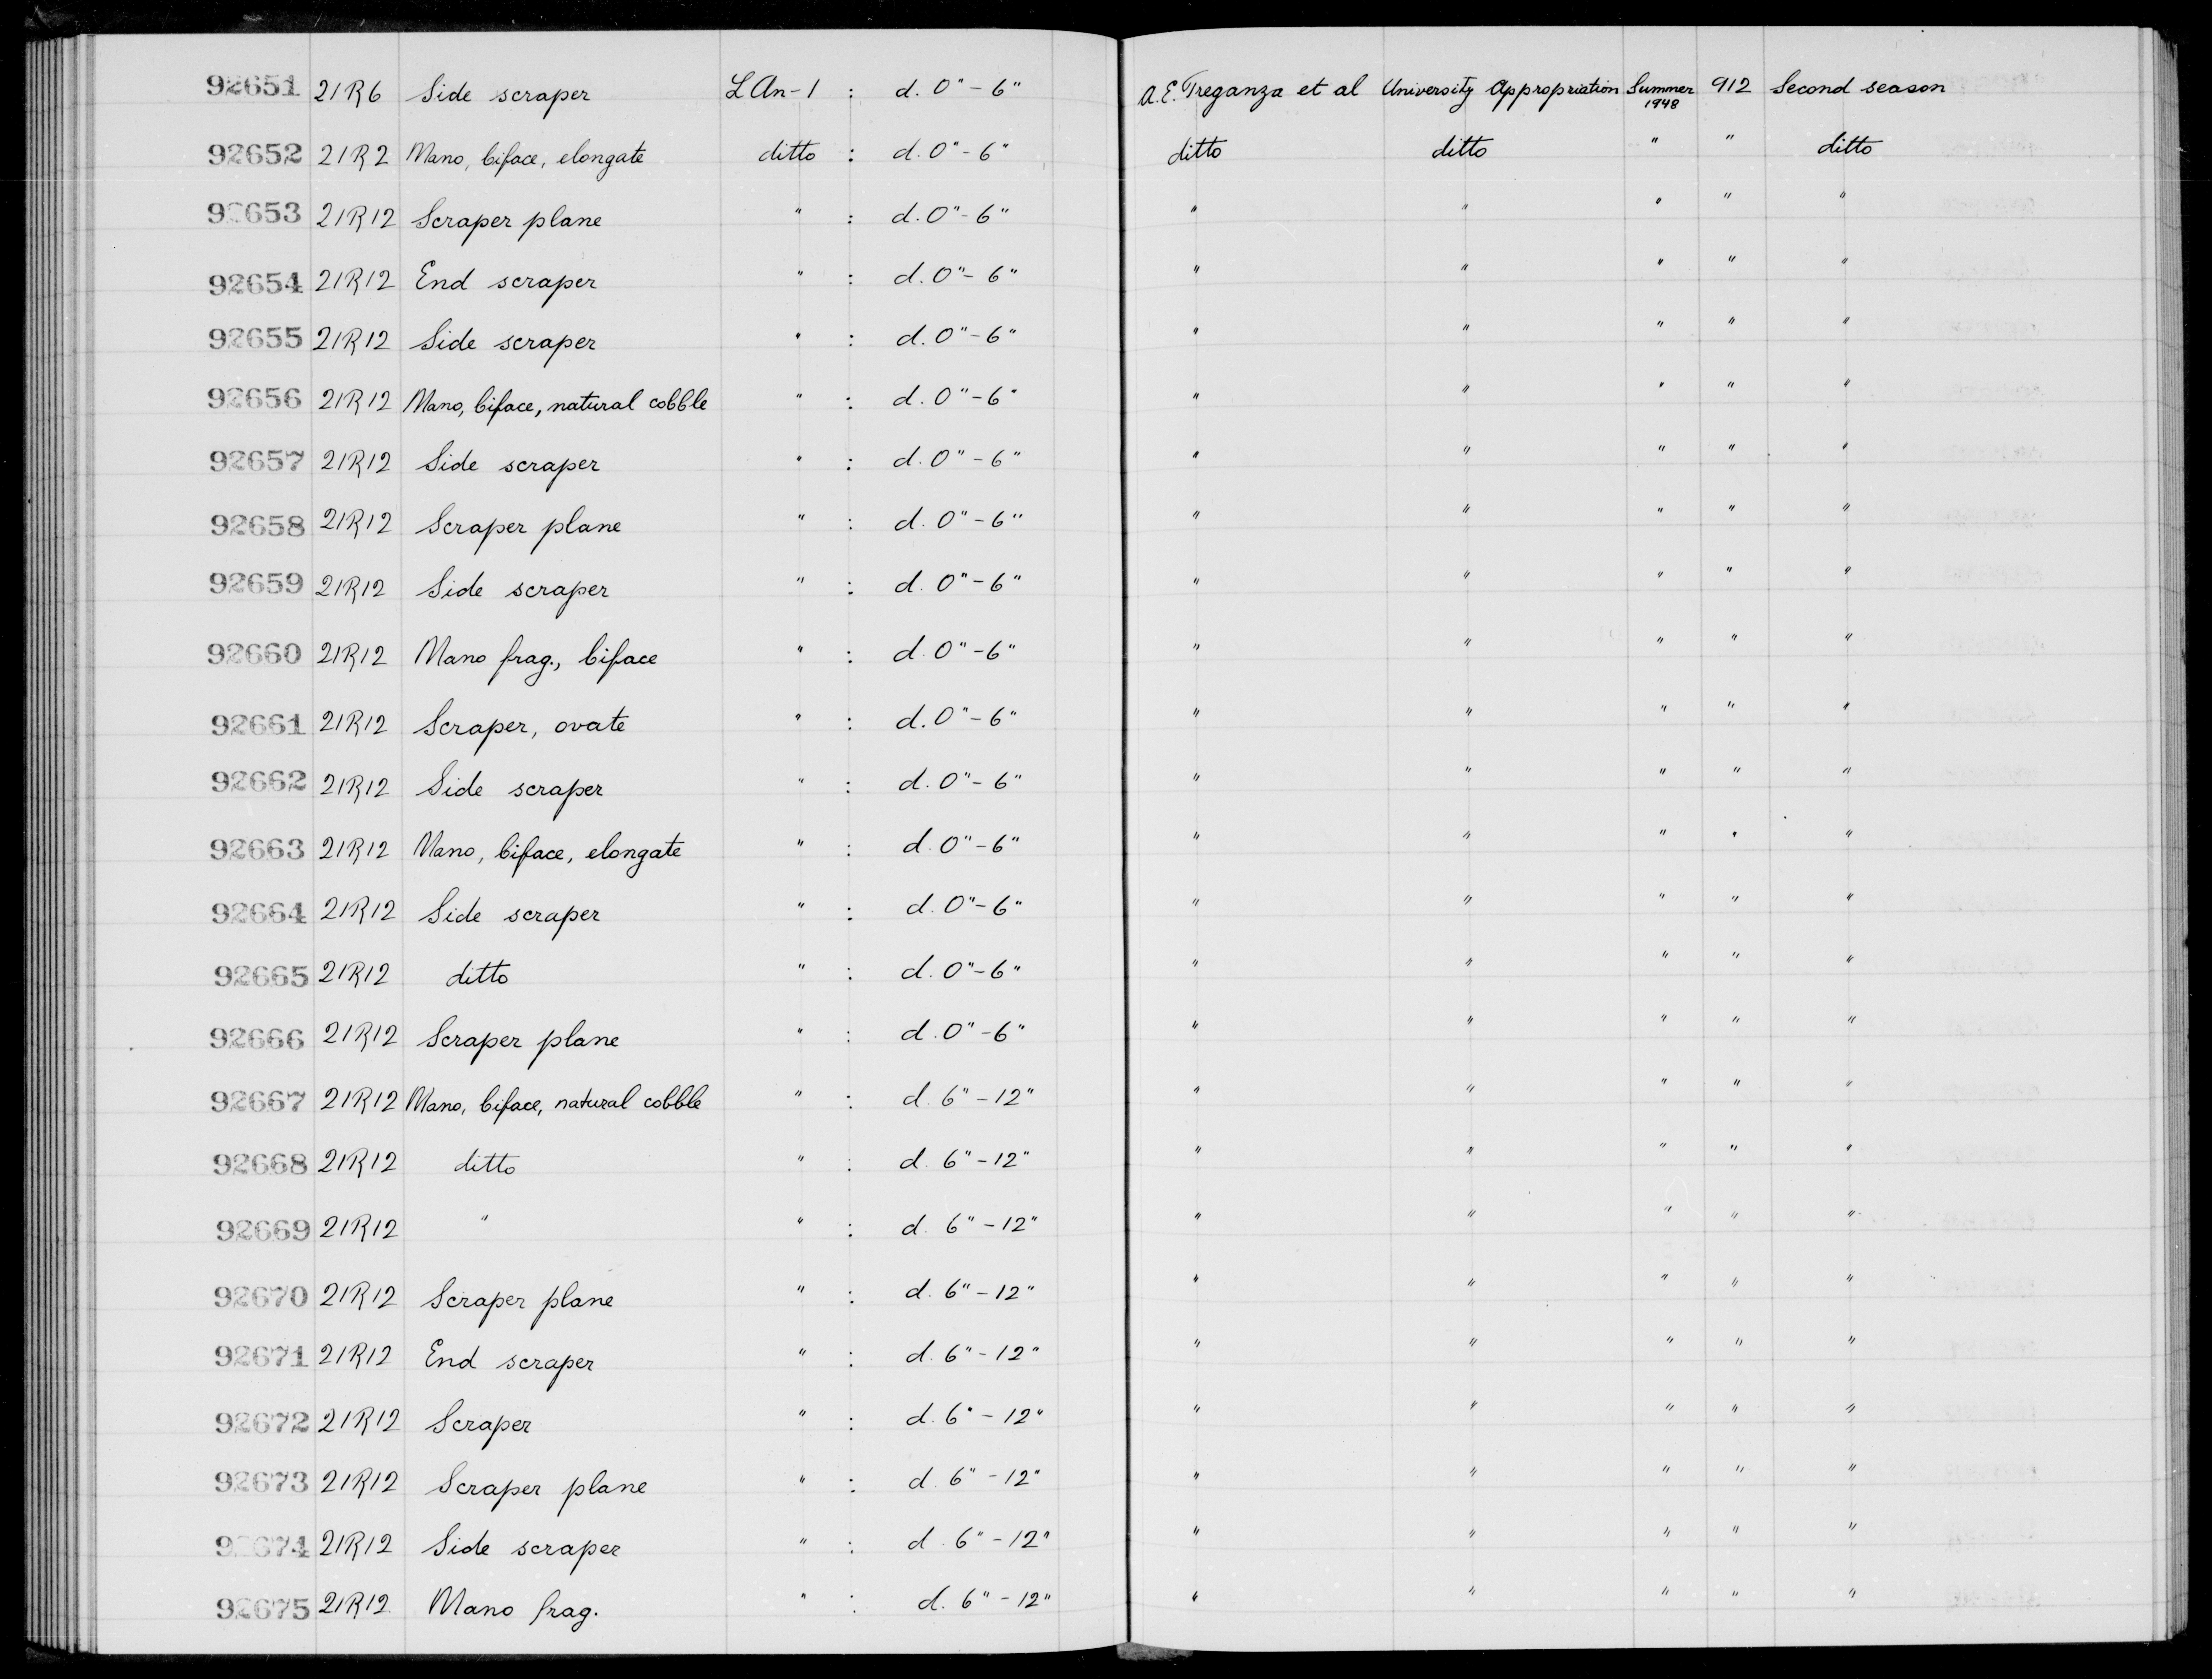 92651 21R6 Side scraper LAn-1 : d. 0"-6" A.E. Treganza et al University Appropriation Summer 1948 912 Second season
92652 21R2 Mano, biface, elongate ditto : d. 0"-6" ditto ditto " " ditto
92653 21R12 Scraper plane " : d. 0"-6" " " " " "
92654 21R12 End scraper " : d. 0"-6" " " " " "
92655 21R12 Side scraper " : d. 0"-6" " " " " "
92656 21R12 Mano, biface, natural cobble " : d. 0"-6" " " " " "
92657 21R12 Side scraper " : d. 0"-6" " " " " "
92658 21R12 Scraper plane " : d. 0"-6" " " " " "
92659 21R12 Side scraper " : d. 0"-6" " " " " "
92660 21R12 Mano frag., biface " : d. 0"-6" " " " " "
92661 21R12 Scraper, ovate " : d. 0"-6" " " " " "
92662 21R12 Side scraper " : d. 0"-6" " " " " "
92663 21R12 Mano, biface, elongate " : d. 0"-6" " " " " "
92664 21R12 Side scraper " : d. 0"-6" " " " " "
92665 21R12 ditto " : d. 0"-6" " " " " "
92666 21R12 Scraper plane " : d. 0"-6" " " " " "
92667 21R12 Mano, biface, natural cobble " : d. 6"-12" " " " " "
92668 21R12 ditto " : d. 6"-12" " " " " "
92669 21R12 " " : d. 6"-12" " " " " "
92670 21R12 Scraper plane " : d. 6"-12" " " " " "
92671 21R12 End scraper " : d. 6"-12" " " " " "
92672 21R12 Scraper " : d. 6"-12" " " " " "
92673 21R12 Scraper plane " : d. 6"-12" " " " " "
92674 21R12 Side scraper " : d. 6"-12" " " " " "
92675 21R12 Mano frag. " : d. 6"-12" " " " " "